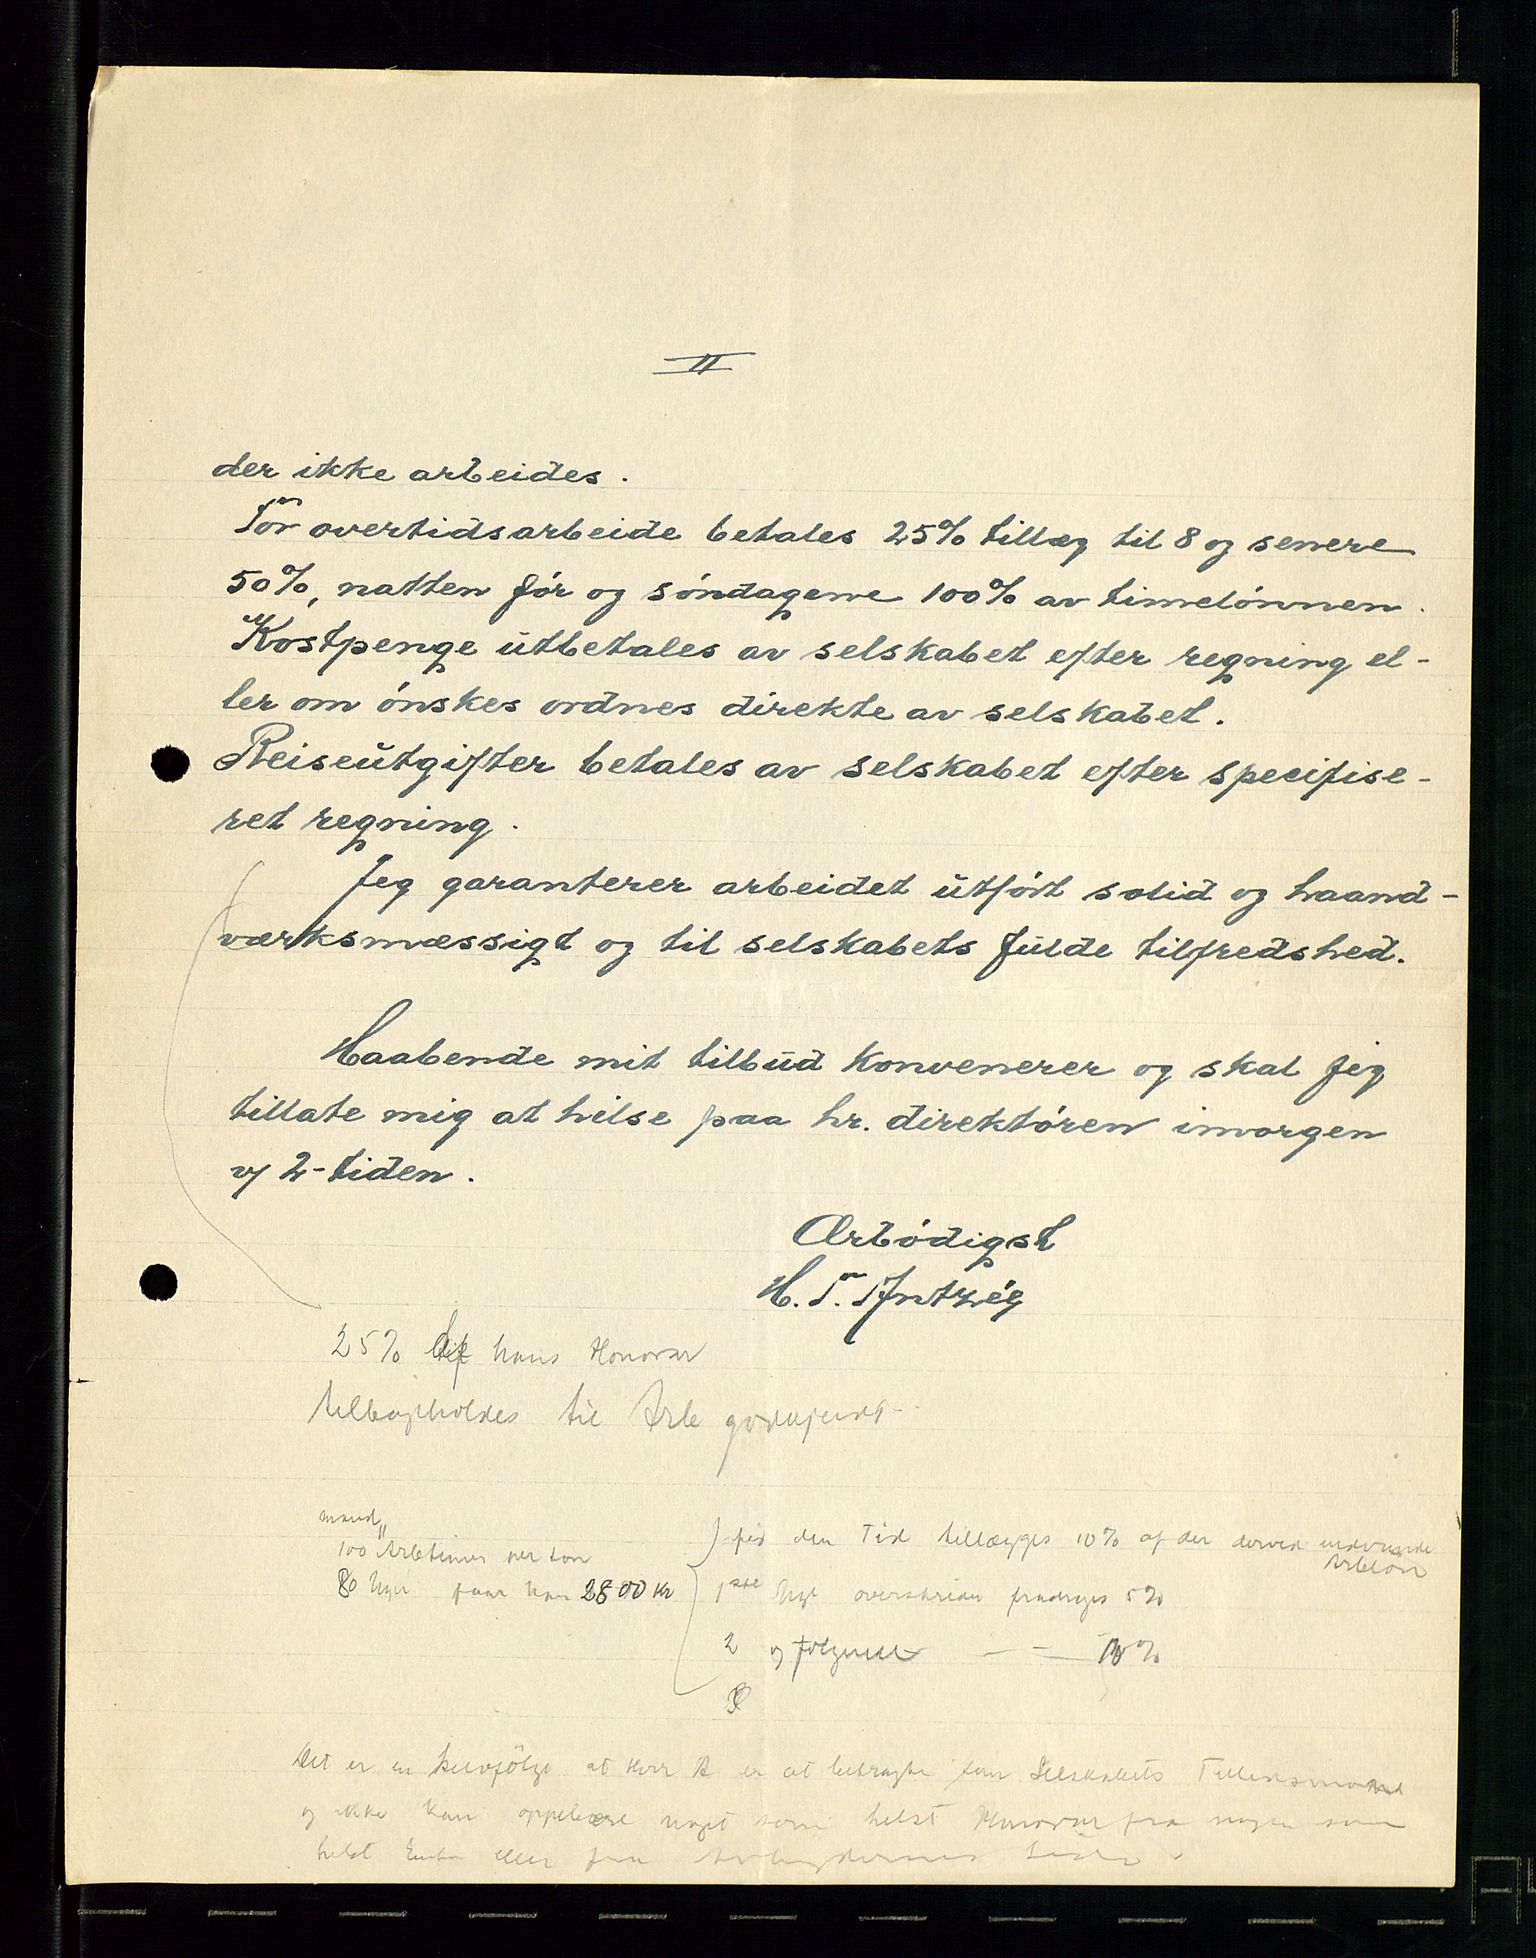 II
der ikke arbeides.
For overtidsarbeide betales 25% tillæg til 8 og senere
50%, natten før og søndagene 100% av timelønnen.
Kostpenge utbetales av selskabet efter regning el-
ler om ønskes ordnes direkte av selskabet.
Reiseutgifter betales av selskabet efter specifise-
ret regning.
Jeg garanterer arbeidet utført solid og haand-
værksmæssigt og til selskabets fulde tilfredshed.
Haabende mit tilbud konvenerer og skal jeg
tillate mig at hilse paa hr. direktøren imorgen
v/ 2-tiden.
Ærbødigst
H. F.
25% af hans Honorar
tilbageholdes til Arb godkjendt
mand
100 Arbtimer per ton
80 faar han 2800 Kr
den Tid tillægges 10% af der derved indvundne
Arbløn
1ste overskrides fradrages 5%
2 og følgende — — 10%
Det er en selvfølge at Herr A er at betragte som Selskabets Tillidsmand
og ikke kan oppebære noget som helst Honorar fra nogen som
helst eller fra side